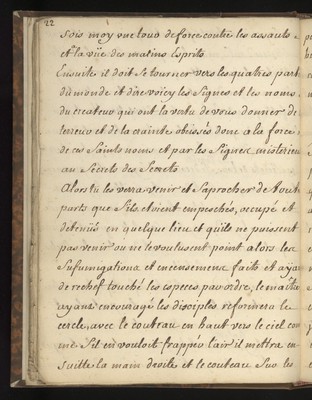 22
sois moy une tour de force contre les assauts
et la vüe des malins Esprits
Ensuite il doit se tourner vers les quatres part
du monde et dire voicy les Signes et les noms
du createur qui ont la vertu de vous donner de
terreur et de la crainte obeissés donc a la force
de ces Saints noms et par les Signes misterieu
au Secrets des Secrets
Alors tu les verra venir et S'aprocher de tout
parts que Sils etoient empeschés, occupé et
detenüs en quelque lieu et qu'ils ne puissent
pas venir ou ne le voulussent point alors les
Sufumigations et encensemens faits et aya
de rechef touché les especes par ordre, le maitre
ayant encouragé les disciples reformera le
cercle, avec le couteau en haut vers le ciel com
me Sil en vouloit frapper l'air il mettra en
suitte la main droite et le couteau Sur les